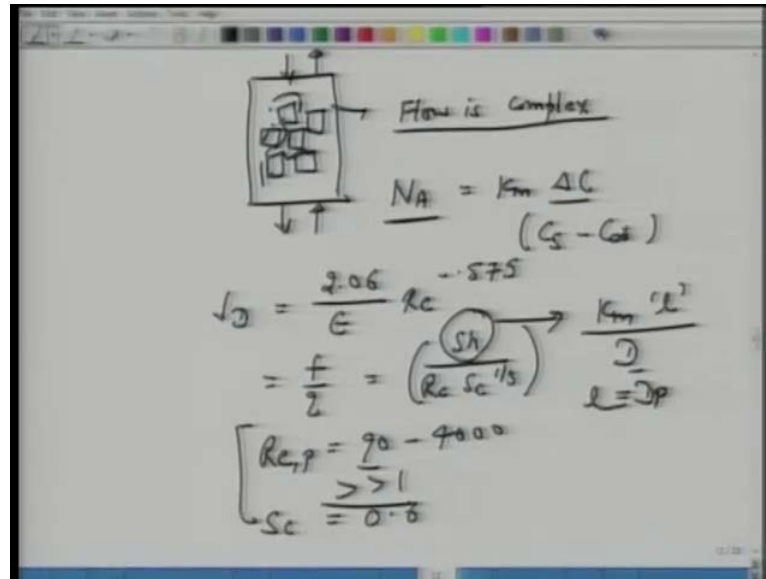 Flow is complex
N_A = K_m ΔC
(C_S - C_∞)
J_D = 2.06/ε Re^-.575
= f/2 = (Sh/(Re Sc^1/3)) → K_m 'l'/D
l = D_p
Re,p = 90 - 4000
>>1
Sc = 0.6